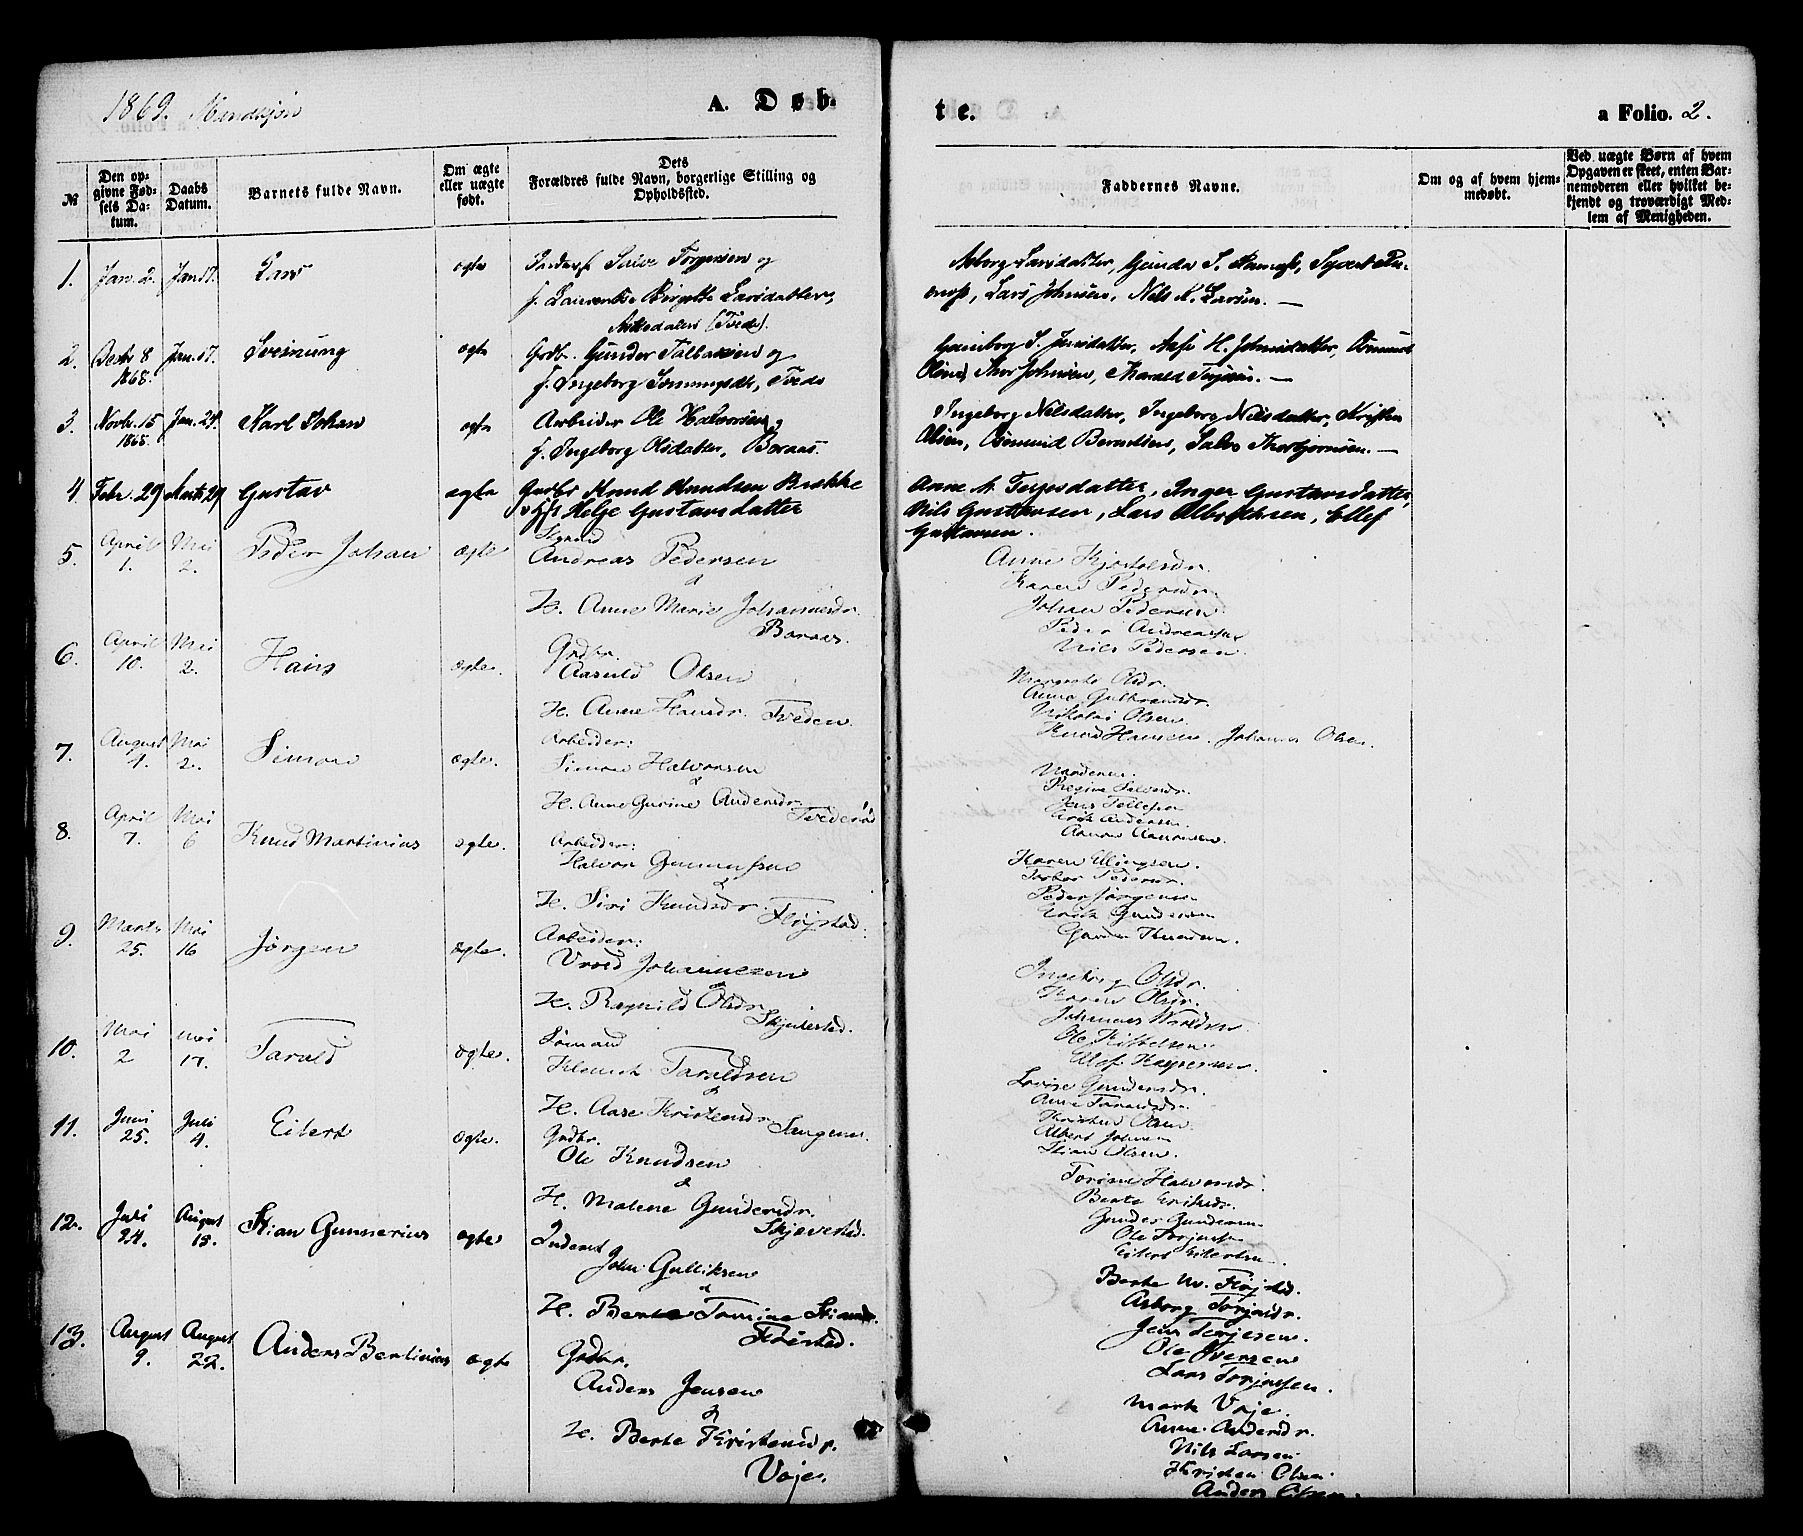 1869. Mandkjön
A. Døb-
te.
a Folio. 2.
№
Den op-
givne Fød-
sels Da-
tum.
Daabs
Datum.
Barnets fulde Navn.
Om ægte
eller uægte
født.
Dets
Forældres fulde Navn, borgerlige Stilling og
Opholdssted.
Faddernes Navne.
Om og af hvem hjem-
medøbt.
Ved uægte Børn af hvem
Opgaven er skeet, enten Bar-
nemoderen eller hvilket be-
kjendt og troværdigt Med-
lem af Menigheden.
1. Jan. 2. Jan 17. Lars ægte
Torgersen og
Birgitte Larsdatter,
(Tvede).
Asborg Larsdatter, Gunder S.
Lars Johnsen, Nils K. Larsen. —
2. Decbr 8 Jan. 17. Sveinung ægte
1868.
Grdbr. Gunder Tallaksen og
H. Ingeborg Tvede
Gunborg S. Jensdatter, Aase H. Johnsdatter, Osmund
Olsen, Thor Johnsen, Harald Terjesen. —
3. Novbr. 15 Jan. 24. Karl Johan ægte
1868.
Arbeider Ole Halvorsen og
H. Ingeborg Olsdatter, Boraas.
Ingeborg Nilsdatter, Ingeborg Nilsdatter, Kristen
Olsen, Osmund Berntsen, Salve Thorbjørnsen. —
4 Febr. 29 Marts 29 Gustav ægte
Gaardbr Knud Knudsen Brække
Helje Gustavsdatter
Anne N. Terjesdatter, Inger Gustavsdatter,
Nils Gustavsen, Lars Albretsen, Ellef
Gustavsen.
5. April 1. Mai 2. Peder Johan ægte
Sømand
Andreas Pedersen
&
H. Anne Marie Johannesdr.
Boraas.
Anne Kjostolsdr.
Karen Pedersdr.
Johan Pedersen
Peder Andreassen
Nils Pedersen
6. April 10. Mai 2. Hans ægte.
Grdbr.
Aasuld Olsen
H. Anne Hansdr. Tveden.
Margrethe Olsdr.
Anne Gulbransdr.
Nikolai Olsen
Knud Hansen. Johannes Olsen.
7. August 4. Mai 2. Simon ægte.
Arbeider:
Simon Halvorsen
&
H. Anne Gurine Andersdr.
Tvederød
Regine Salvesdr.
Jens Tellefsen
Erik Andersen
8. April 7. Mai 6 Knud Martinius ægte.
Arbeider:
Halvor Gunnufsen
&
H. Siri Knudsdr.
Fløjstad.
Karen Ellingsen.
Torbor Pedersdr.
Peder Jørgensen
Erik Gundersen
Gunder Knudsen.
9. Marts 25. Mai 16 Jørgen ægte.
Arbeider:
Vrold Johannesen
&
H. Ragnild Olsdr.
Skjulestad.
Ingeborg Olsdr.
Karen Olsdr.
Johannes Vroldsen
Ole Kittelsen
Ellef Kaspersen
10. Mai 2 mai 17. Tarald ægte.
Sømand
Taraldsen
&
H. Aase Kristensdr.
Sangene.
Lovise Gundersdr.
Anne Taraldsdr.
Kristen Olsen
Albert Johnsen
Stian Olsen.
11. Juni 25. Juli 4. Eilert ægte.
Grdbr.
Ole Knudsen
&
H. Malene Gundersdr.
Skjævestad.
Torine Halvorsdr.
Berte Eriksdr.
Gunder Gundersen
Ole Torjussen
Eilert Eilertsen.
12. Juli 24. August 15. Stian Gunnerius ægte
Inderst
John Gulliksen
&
H. Berte Tomine Stiansdr.
Fløistad.
Berte M. Fløjstad.
Asborg Torjusdr.
Jens Terjesen.
Ole Iversen
Lars Torjussen.
13. August 9. August 22. Anders Bertinius ægte
Grdbr.
Anders Jensen
&
H. Berte Kristensdr.
Voje.
Marte Voje.
Anne Andersdr.
Nils Larsen
Kristen Olsen
Anders Olsen.